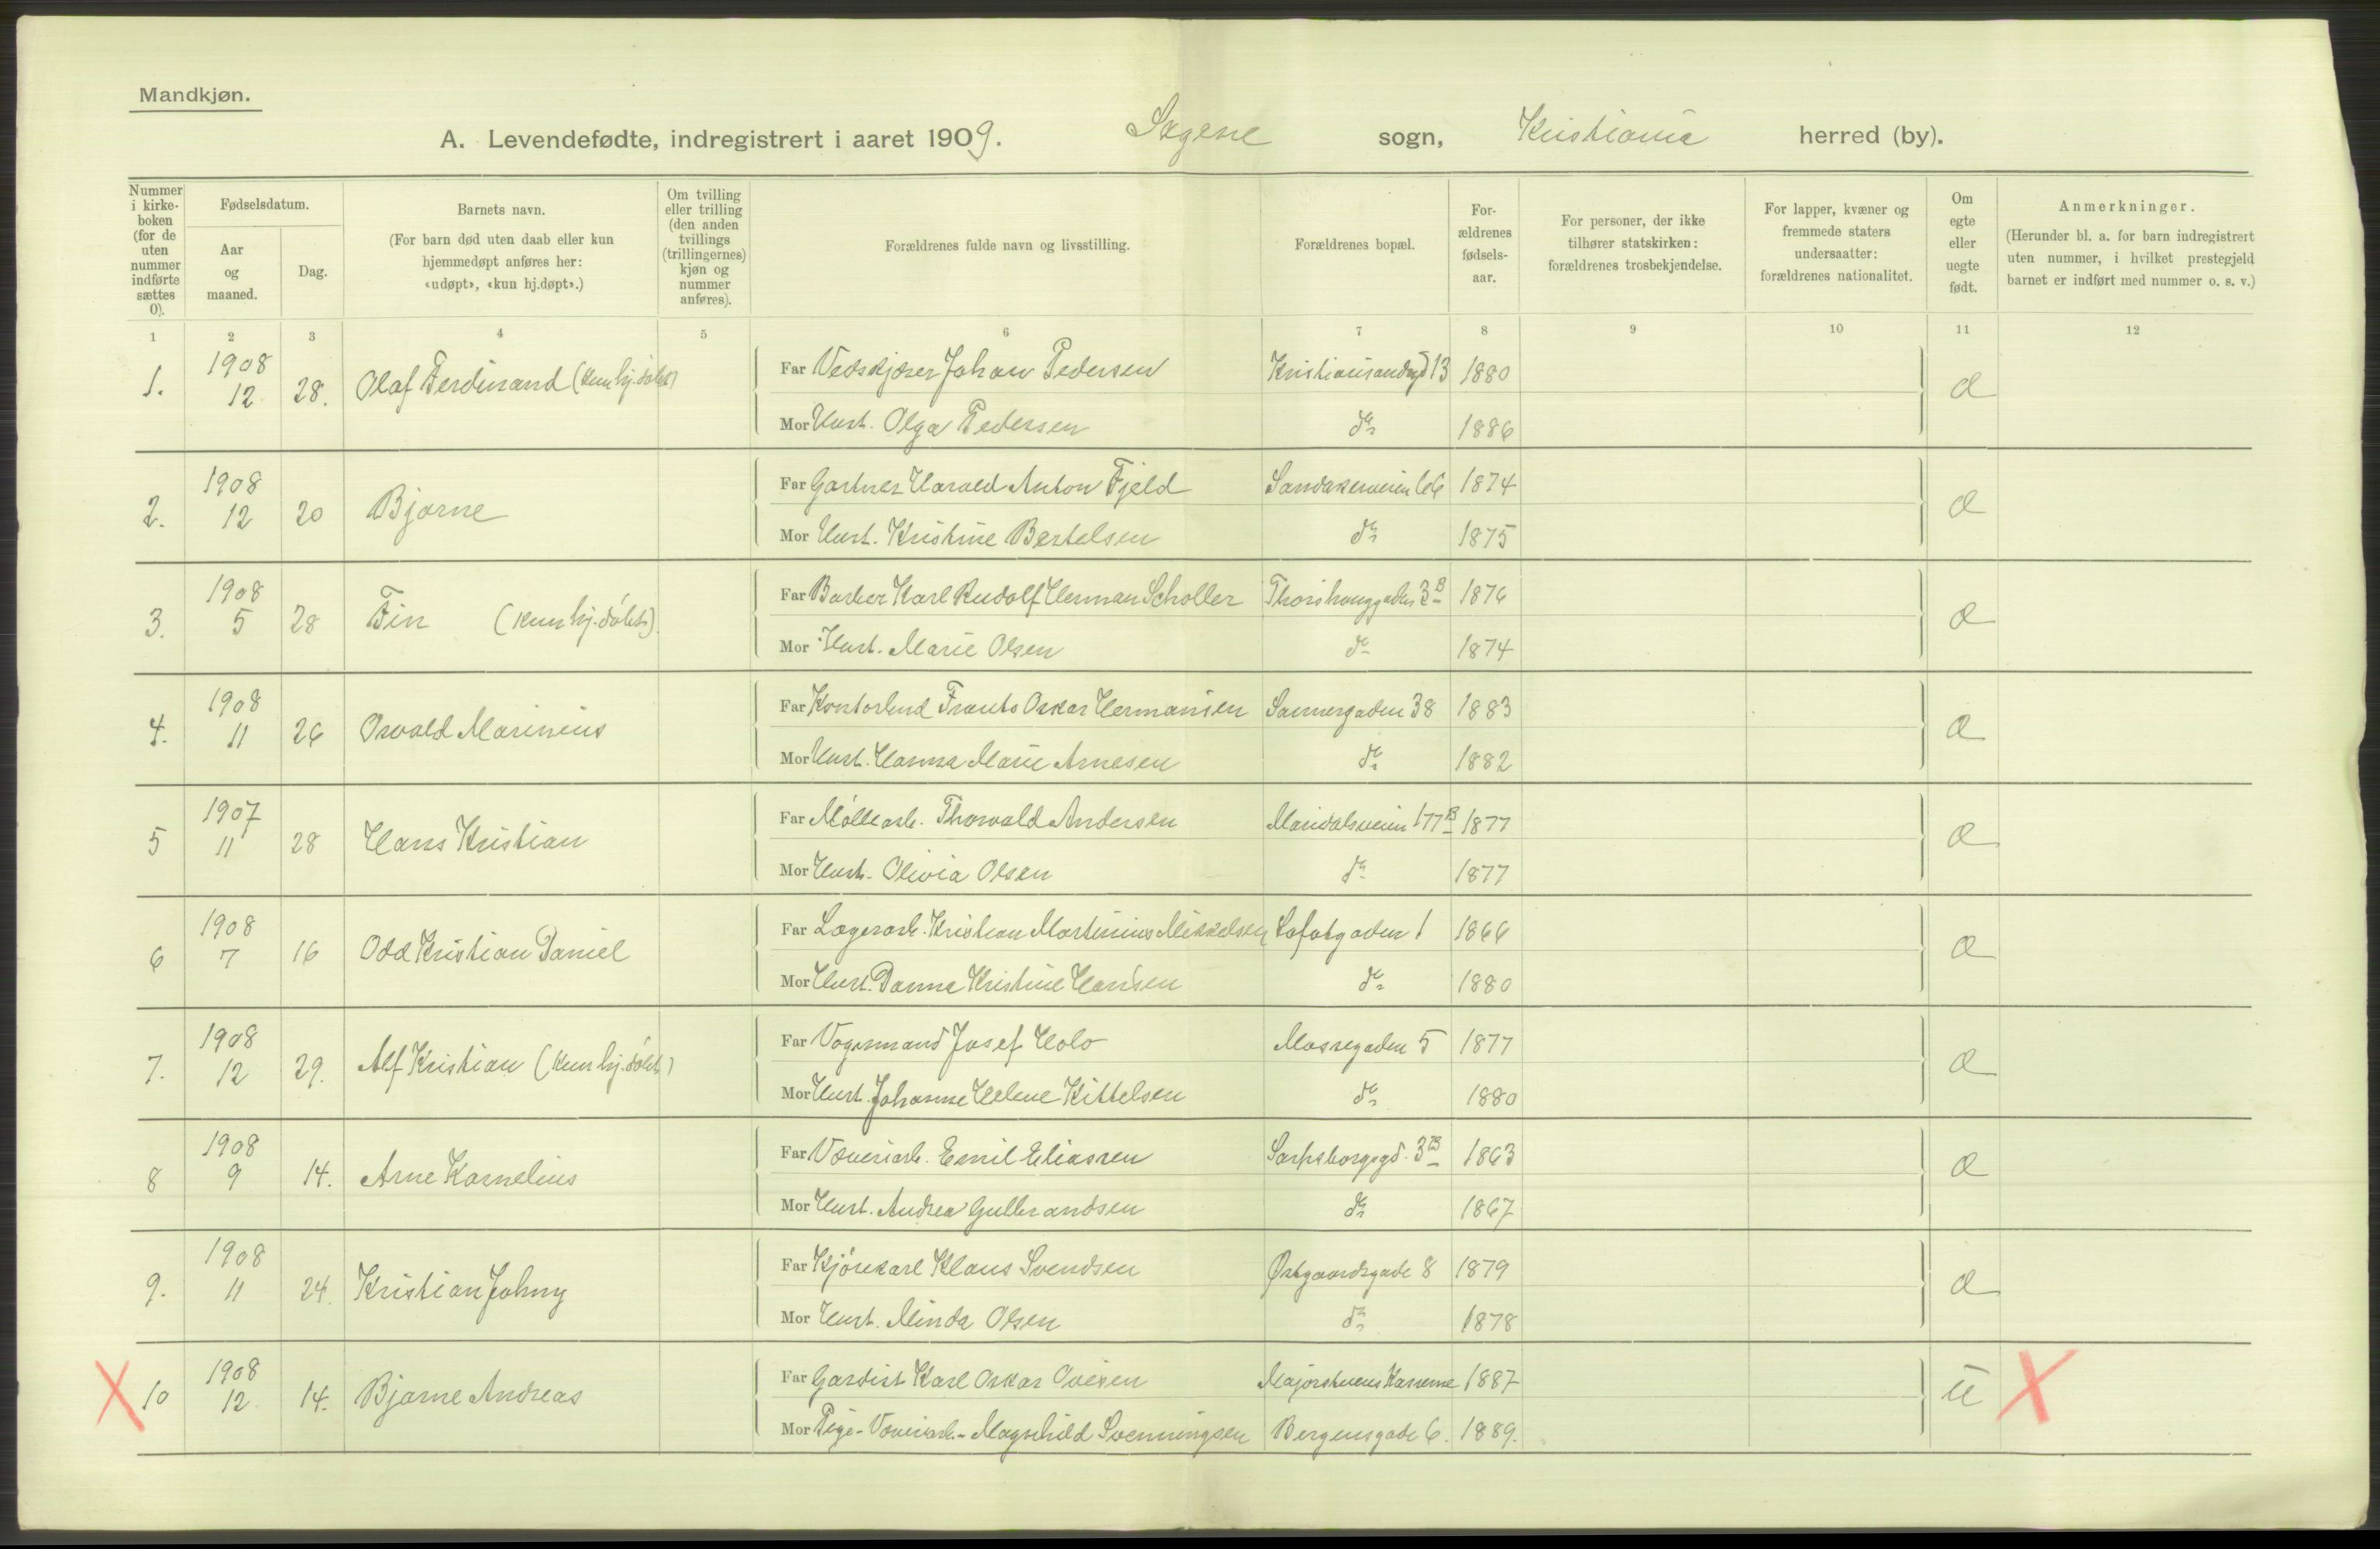 Mandkjøn.
A. Levendefødte, indregistrert i aaret 1909. Sagene sogn, Kristiania herred (by).
Nummer i kirke-boken (for de uten nummer indførte sættes 0).
Fødselsdatum.
Aar og maaned.
Dag.
Barnets navn.
(For barn død uten daab eller kun hjemmedøpt anføres her: «udøpt», «kun hj.døpt».)
Om tvilling eller trilling (den anden tvillings (trillingernes) kjøn og nummer anføres).
Forældrenes fulde navn og livsstilling.
Forældrenes bopæl.
For-ældrenes fødsels-aar.
For personer, der ikke tilhører statskirken: forældrenes trosbekjendelse.
For lapper, kvæner og fremmede staters undersaatter: forældrenes nationalitet.
Om egte eller uegte født.
Anmerkninger.
(Herunder bl. a. for barn indregistrert uten nummer, i hvilket prestegjeld barnet er indført med nummer o. s. v.)
1 2 3 4 5 6 7 8 9 10 11 12
1. 1908 12 28. Olaf Ferdinand (kun hj.døbt)
Far Vedskjører Johan Pedersen Kristiansandsgd 13 1880
Mor Hust. Olga Pedersen do 1886
2. 1908 12 20 Bjarne
Far Gartner Harald Anton Fjeld Sandakerveien 66 1874
Mor Hust. Kristine Bertelsen do 1875
3. 1908 5 28 Fin (kun hj.døbt)
Far Barber Karl Rudolf Herman Scholler Thorshauggaden 3B 1876
Mor Hust. Marie Olsen do 1874
4. 1908 11 26 Osvald Marinius
Far Frants Oskar Hermansen Sannergaden 38 1883
Mor Hust. Hanna Marie Arnesen do 1882
5 1907 11 28 Hans Kristian
Far Møllearb. Thorvald Andersen Maridalsveien 177B 1877
Mor Hust. Olivia Olsen do 1877
6 1908 7 16 Odd Kristian Daniel
Far Lagerarb. Kristian Martinius Mikkelsen Lofotgaden 1 1866
Mor Hust. Kristine Hansen do 1880
7. 1908 12 29. Alf Kristian (kun hj.døbt)
Far Vognmand Josef Holo Mossegaden 5 1877
Mor Hust. Johanne Helene Kittelsen do 1880
8 1908 9 14. Arne Kornelius
Far Væveriarb. Emil Eliassen Sarpsborggd. 3B 1863
Mor Hust. Andrea Gulbrandsen do 1867
9. 1908 11 24. Kristian Johny
Far Kjørekarl Klaus Svendsen Østgaardsgade 8 1879
Mor Hust. Minda Olsen do 1878
X 10 1908 12. 14. Bjarne Andreas U X
Far Gardist Karl Oskar Ovesen Majorstuens Kaserne 1887
Mor Pige - Væveriarb. - Magnhild Svenningsen Bergensgade 6. 1889.